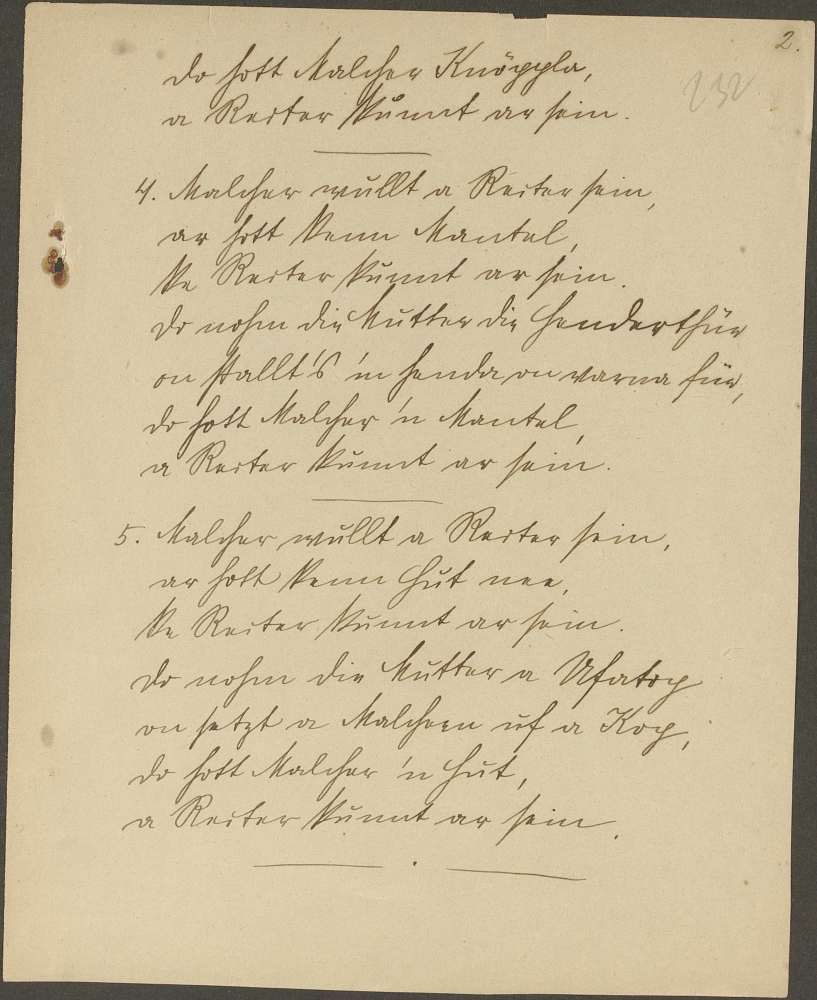 2.
232
do hott Malcher Knöppla,
a Reiter kunnt ar sein.
4. Malcher wullt a Reiter sein,
ar hott kenn Mantel,
ke Reiter kunnt ar sein.
do nohm die Mutter die Henderthür
on stallt's 'm henda on varna für,
do hott Malcher 'n Mantel,
a Reiter kunnt ar sein.
5. Malcher wullt a Reiter sein,
ar hott kenn Hut nee,
ke Reiter kunnt ar sein.
do nohm die Mutter a Ufatop
on setzt a Malchern uf a Kop,
do hott Malcher 'n Hut,
a Reiter kunnt ar sein.